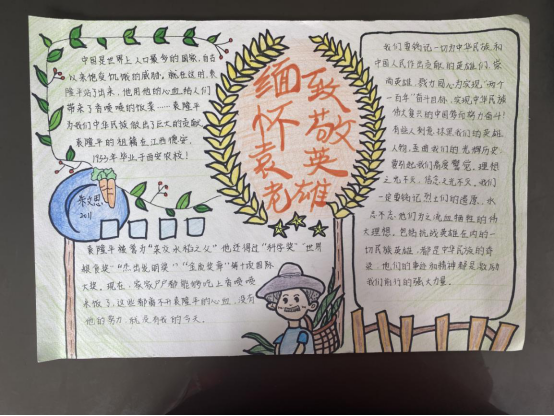 缅怀袁老
致敬英雄
中国是世界上人口最多的国家,自古
以来饱受饥饿的威胁。就在这时,袁
隆平站了出来,他用他的心血给人们
带来了香喷喷的饭菜……袁隆平
为我们中华民族做出了巨大的贡献。
袁隆平的祖籍在江西德安,
1953年毕业于西安农校!
2011
袁隆平被誉为“杂交水稻之父”他还得过“科学奖”“世界
粮食奖”“杰出发明奖”“金
大奖。现在,家家户户都能够吃上香喷喷
米饭了,这些都离不开袁隆平的心血,没有
他的努力,就没有我的今天。
我们要铭记一切为中华民族和
中国人民作出贡献的英雄们,崇
尚英雄,戮力同心为实现“两个
一百年”奋斗目标,实现中华民族
伟大复兴的中国梦而努力奋斗!
有些人刻意抹黑我们的英雄
人物,歪曲我们的光辉历史,
要引起我们高度警觉。理想
之光不灭,信念之光不灭。我们
一定要铭记烈士们的遗愿,永
志不忘他们为之流血牺牲的伟
大理想。包括抗战英雄在内的一
切民族英雄,都是中华民族的脊
梁,他们的事迹和精神都是激励
我们前行的强大力量。